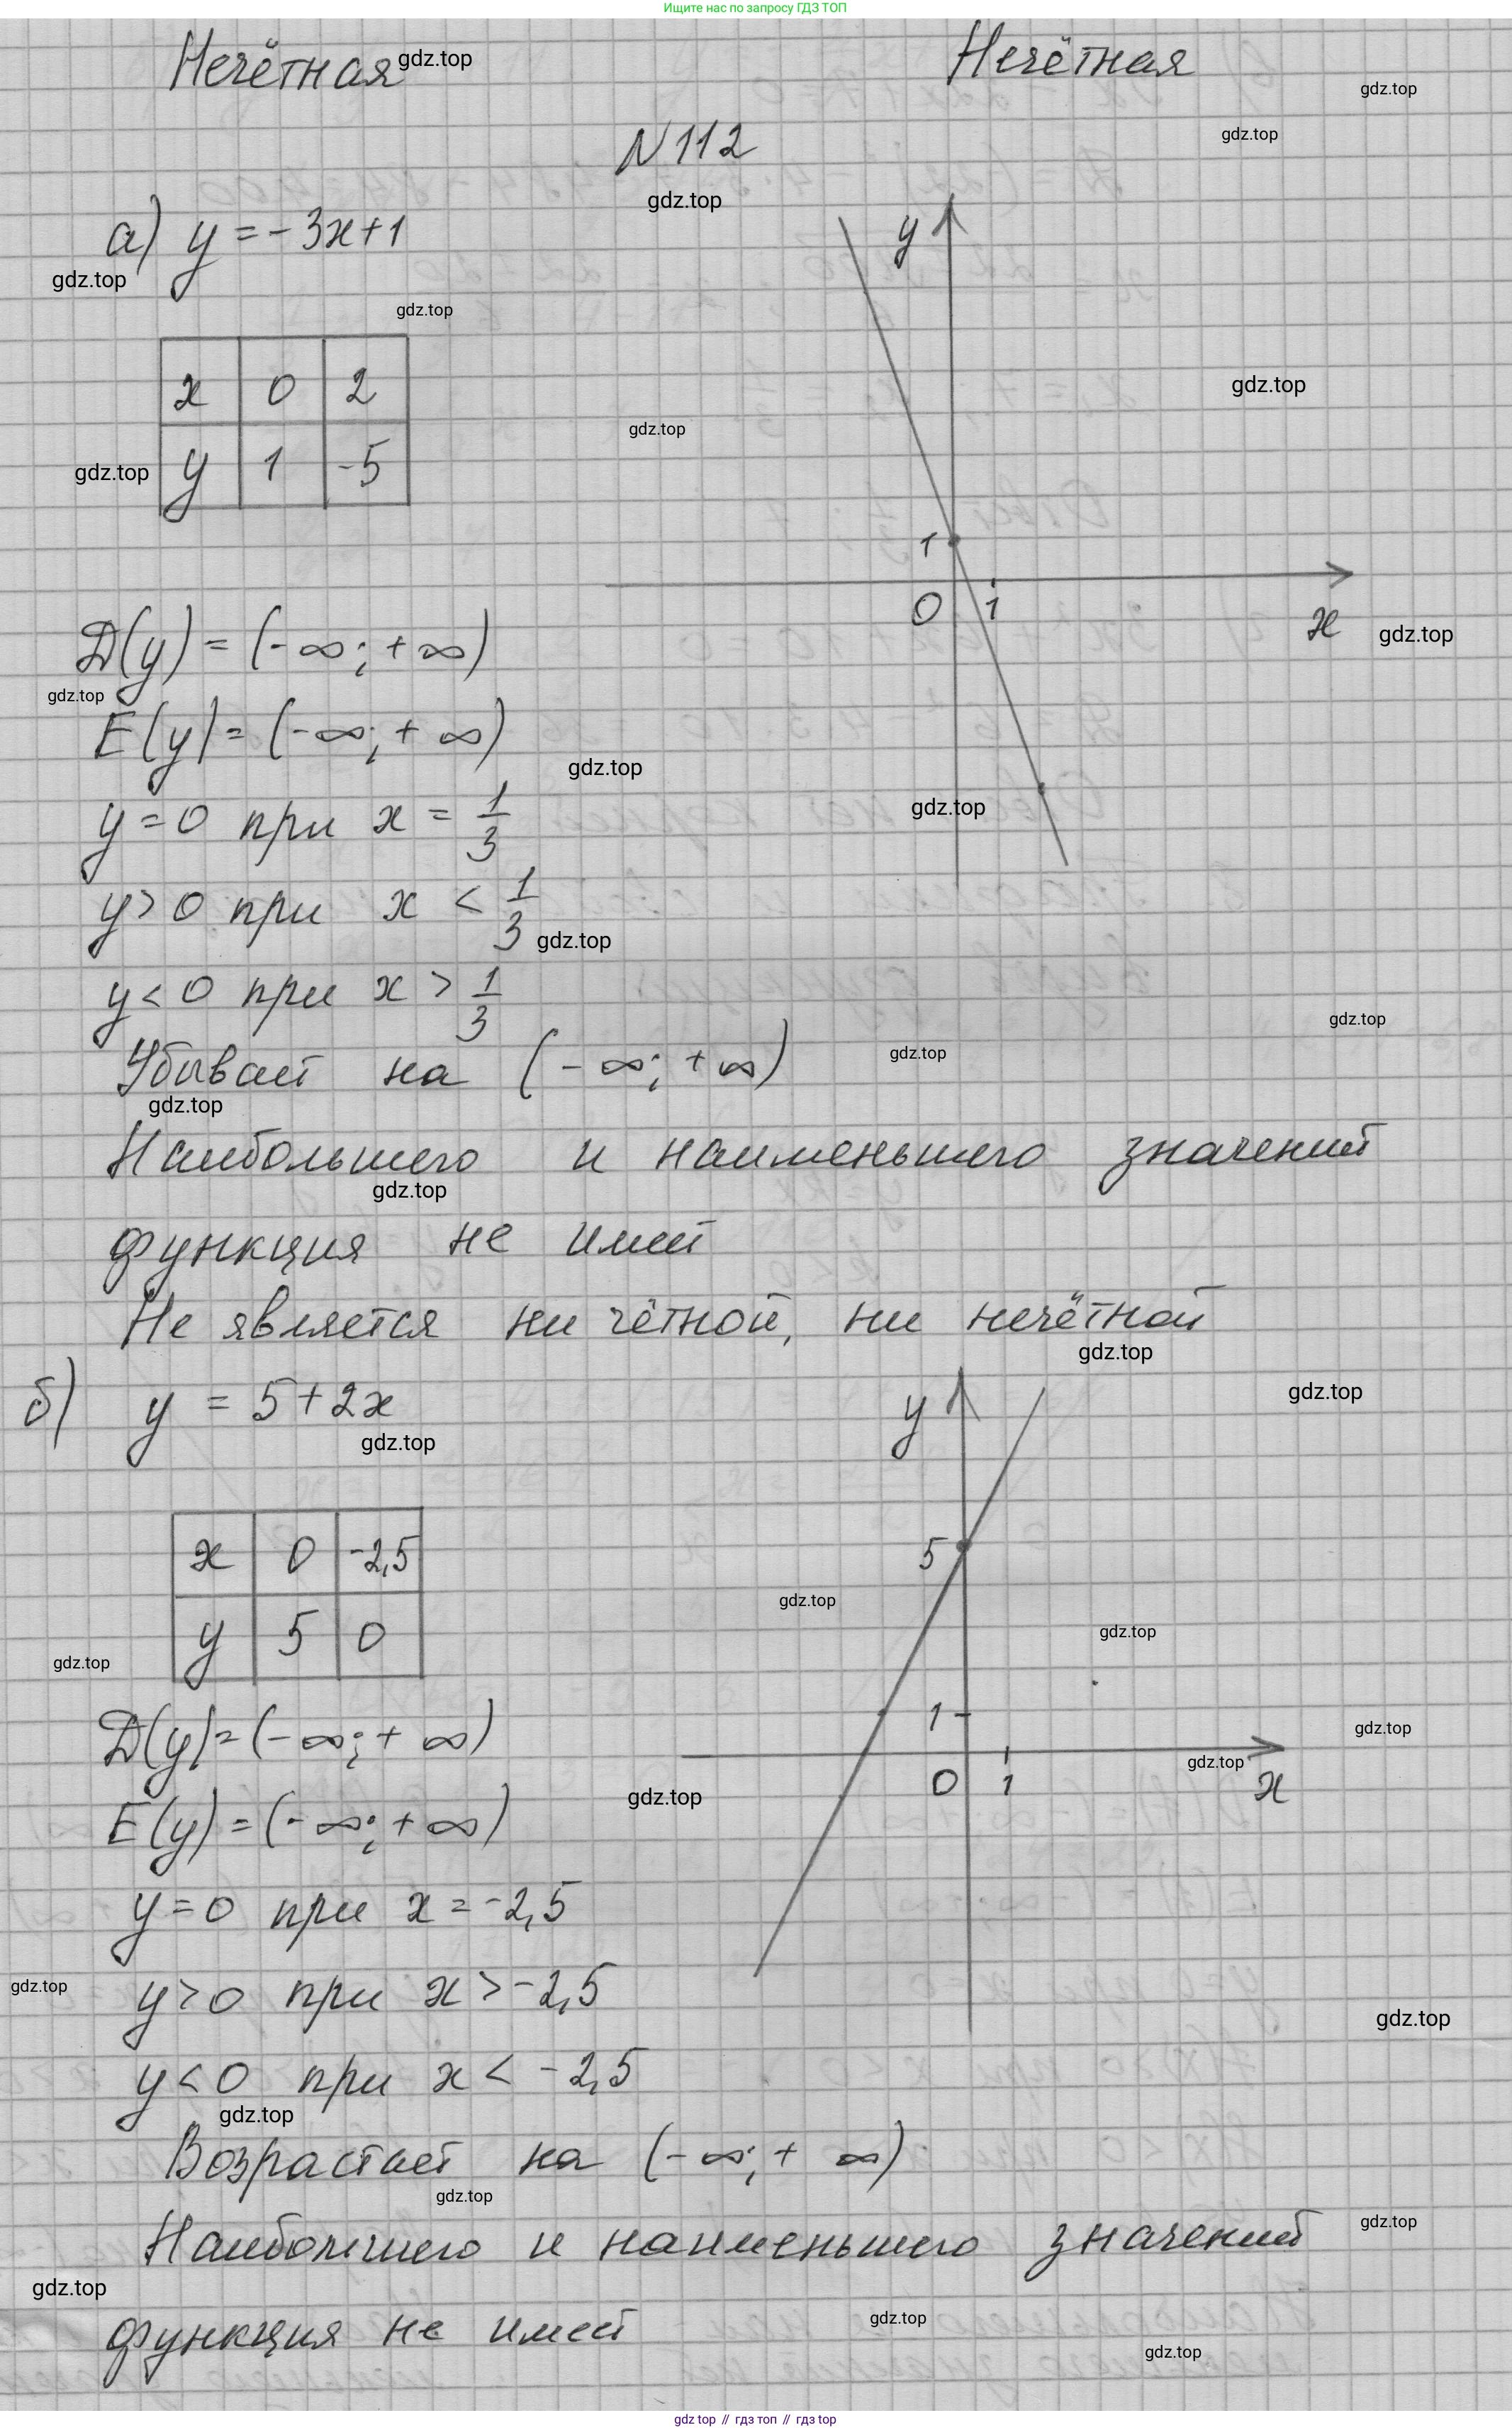 Ищите нас по запросу ГДЗ ТОП
Нечётная gdz.top Нечётная
gdz.top
gdz.top
N 112
gdz.top
а) y = - 3x+1
y
gdz.top
gdz.top
x 0 2
gdz.top
gdz.top
y 1 -5
gdz.top
1
0 1
x gdz.top
D(y) = (-∞; +∞)
gdz.top
E(y) = (-∞; +∞)
gdz.top
gdz.top
y=0 при x = 1/3
y>0 при x < 1/3
gdz.top
y<0 при x > 1/3
gdz.top
Убывает на (-∞; +∞)
gdz.top
gdz.top
Наибольшего и наименьшего значений
gdz.top
функция не имеет
Не является ни чётной, ни нечётной
gdz.top
б) y = 5+2x
y
gdz.top
gdz.top
x 0 -2,5
5
gdz.top
gdz.top
y 5 0
gdz.top
1
D(y) = (-∞; +∞)
gdz.top
gdz.top
0 1
x
gdz.top
E(y) = (-∞; +∞)
y=0 при x = -2,5
gdz.top
y>0 при x > -2,5
gdz.top
y<0 при x < -2,5
gdz.top
Возрастает на (-∞; +∞)
gdz.top
gdz.top
Наибольшего и наименьшего значений
gdz.top
функция не имеет
gdz.top
gdz.top
gdz top // гдз топ // гдз top